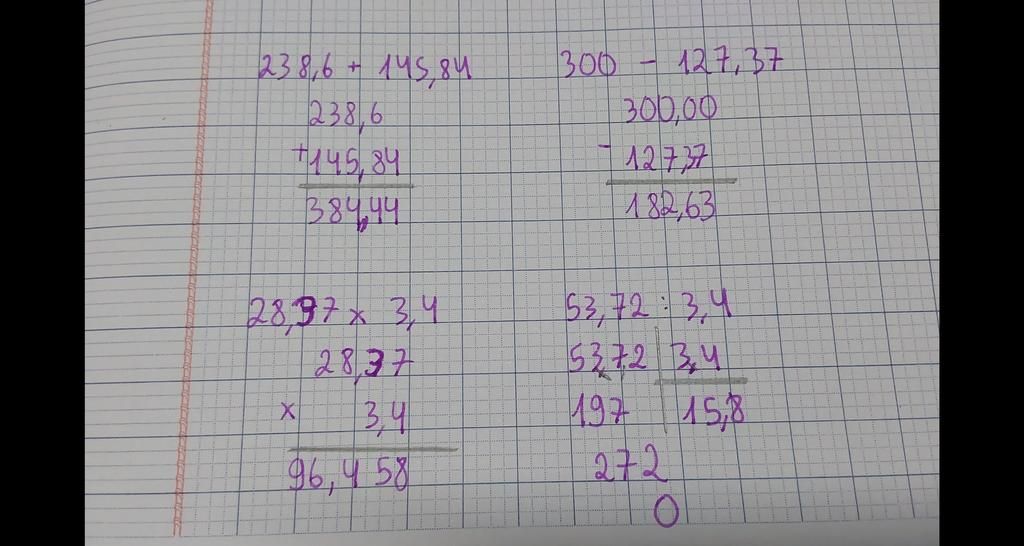 238,6 + 145,84
238,6
+145,84
384,44
300 - 127,37
300,00
- 127,37
182,63
28,37 x 3,4
28,37
x 3,4
96,458
53,72 : 3,4
53,72 3,4
197 15,8
272
0